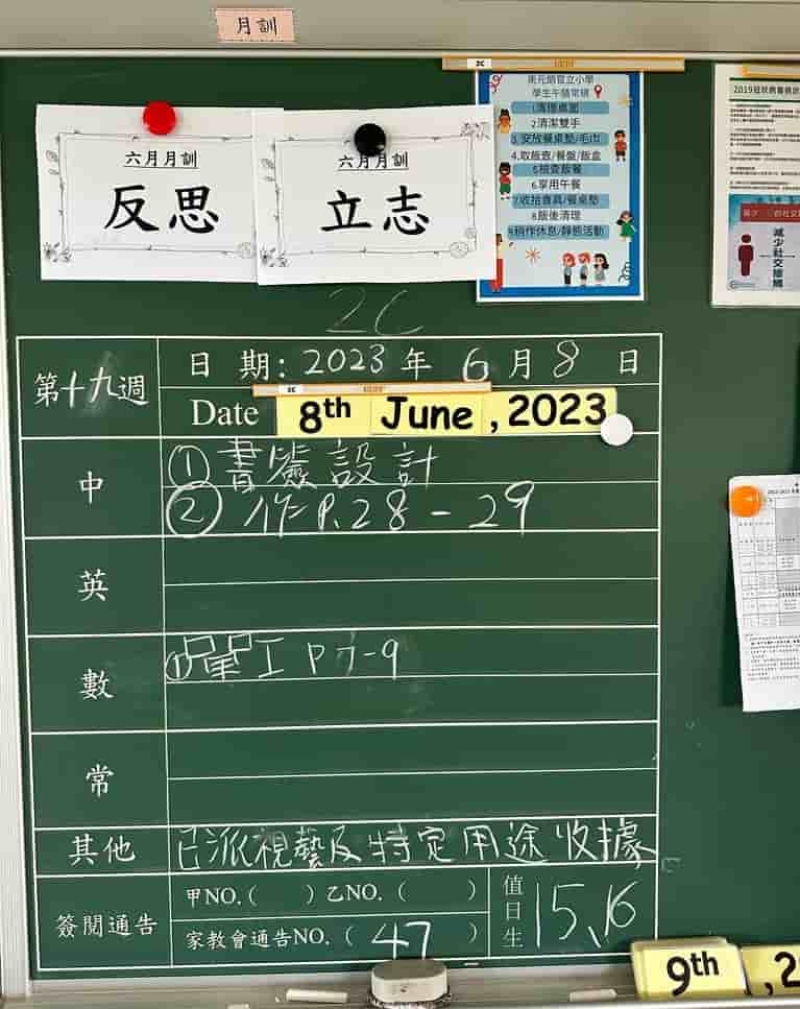 月訓
六月月訓
反思
六月月訓
立志
學生午膳常規
1.清理桌面
2.清潔雙手
3.安放餐桌墊/毛巾
4.取飯壺/餐盤/飯盒
5.檢查飯餐
6.享用午餐
7.收拾食具/餐桌墊
8.飯後清理
9.稍作休息/靜態活動
減少社交接觸
2C
第十九週
日 期: 2023 年 6 月 8 日
Date 8th June , 2023
中
① 書籤設計
② 作 P.28 - 29
英
數
① 單工 P7-9
常
其他
已派視藝及特定用途收據
簽閱通告
甲NO.( ) 乙NO. ( )
家教會通告NO. ( 47 )
值日生
15、16
9th , 2